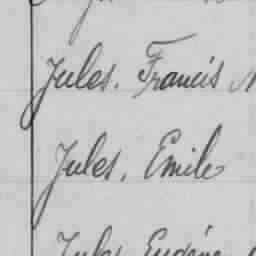 Jules. Francis
Jules. Emile
Jules Eugène